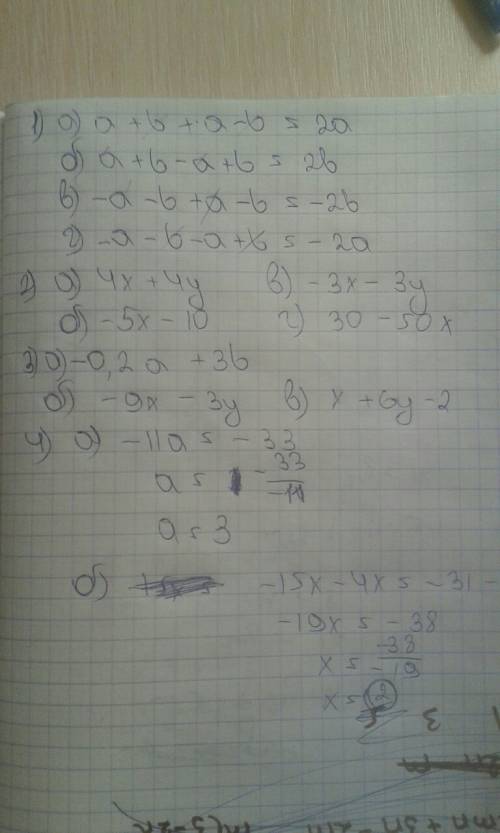 1) а) a + b + a - b = 2a
б) a + b - a + b = 2b
в) -a - b + a - b = -2b
г) -a - b - a + b = -2a
2) а) 4x + 4y в) -3x - 3y
б) -5x - 10 г) 30 - 50x
3) а) -0,2a + 3b
б) -9x - 3y в) x + 6y - 2
4) а) -11a = -33
a = -33/-11
a = 3
б) -15x - 4x = -31 -
-19x = -38
x = -38/-19
x = 2